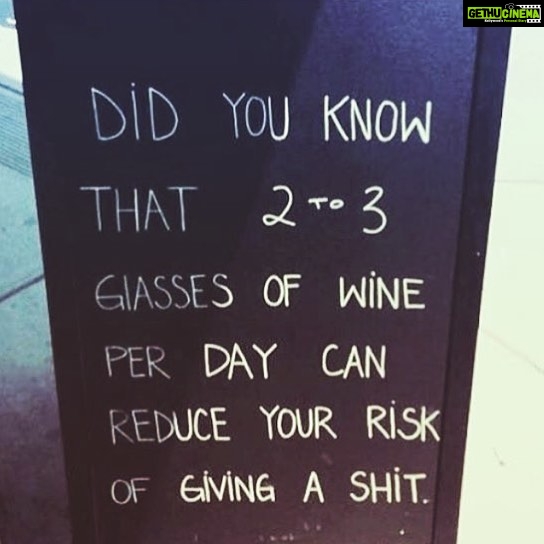 GETHUCINEMA
DiD YOU KNOW
THAT 2 TO 3
GlASSES OF WiNE
PER DAY CAN
REDUCE YOUR RiSK
OF GiViNG A SHiT.